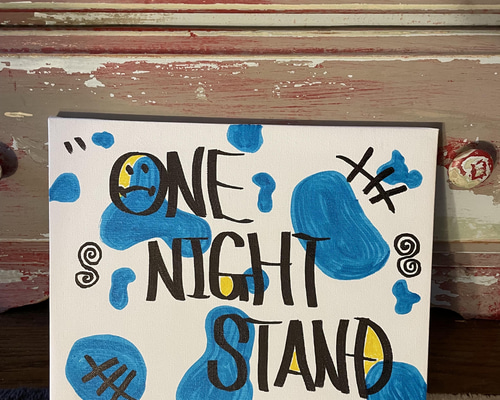 " ONE
NIGHT
STAND